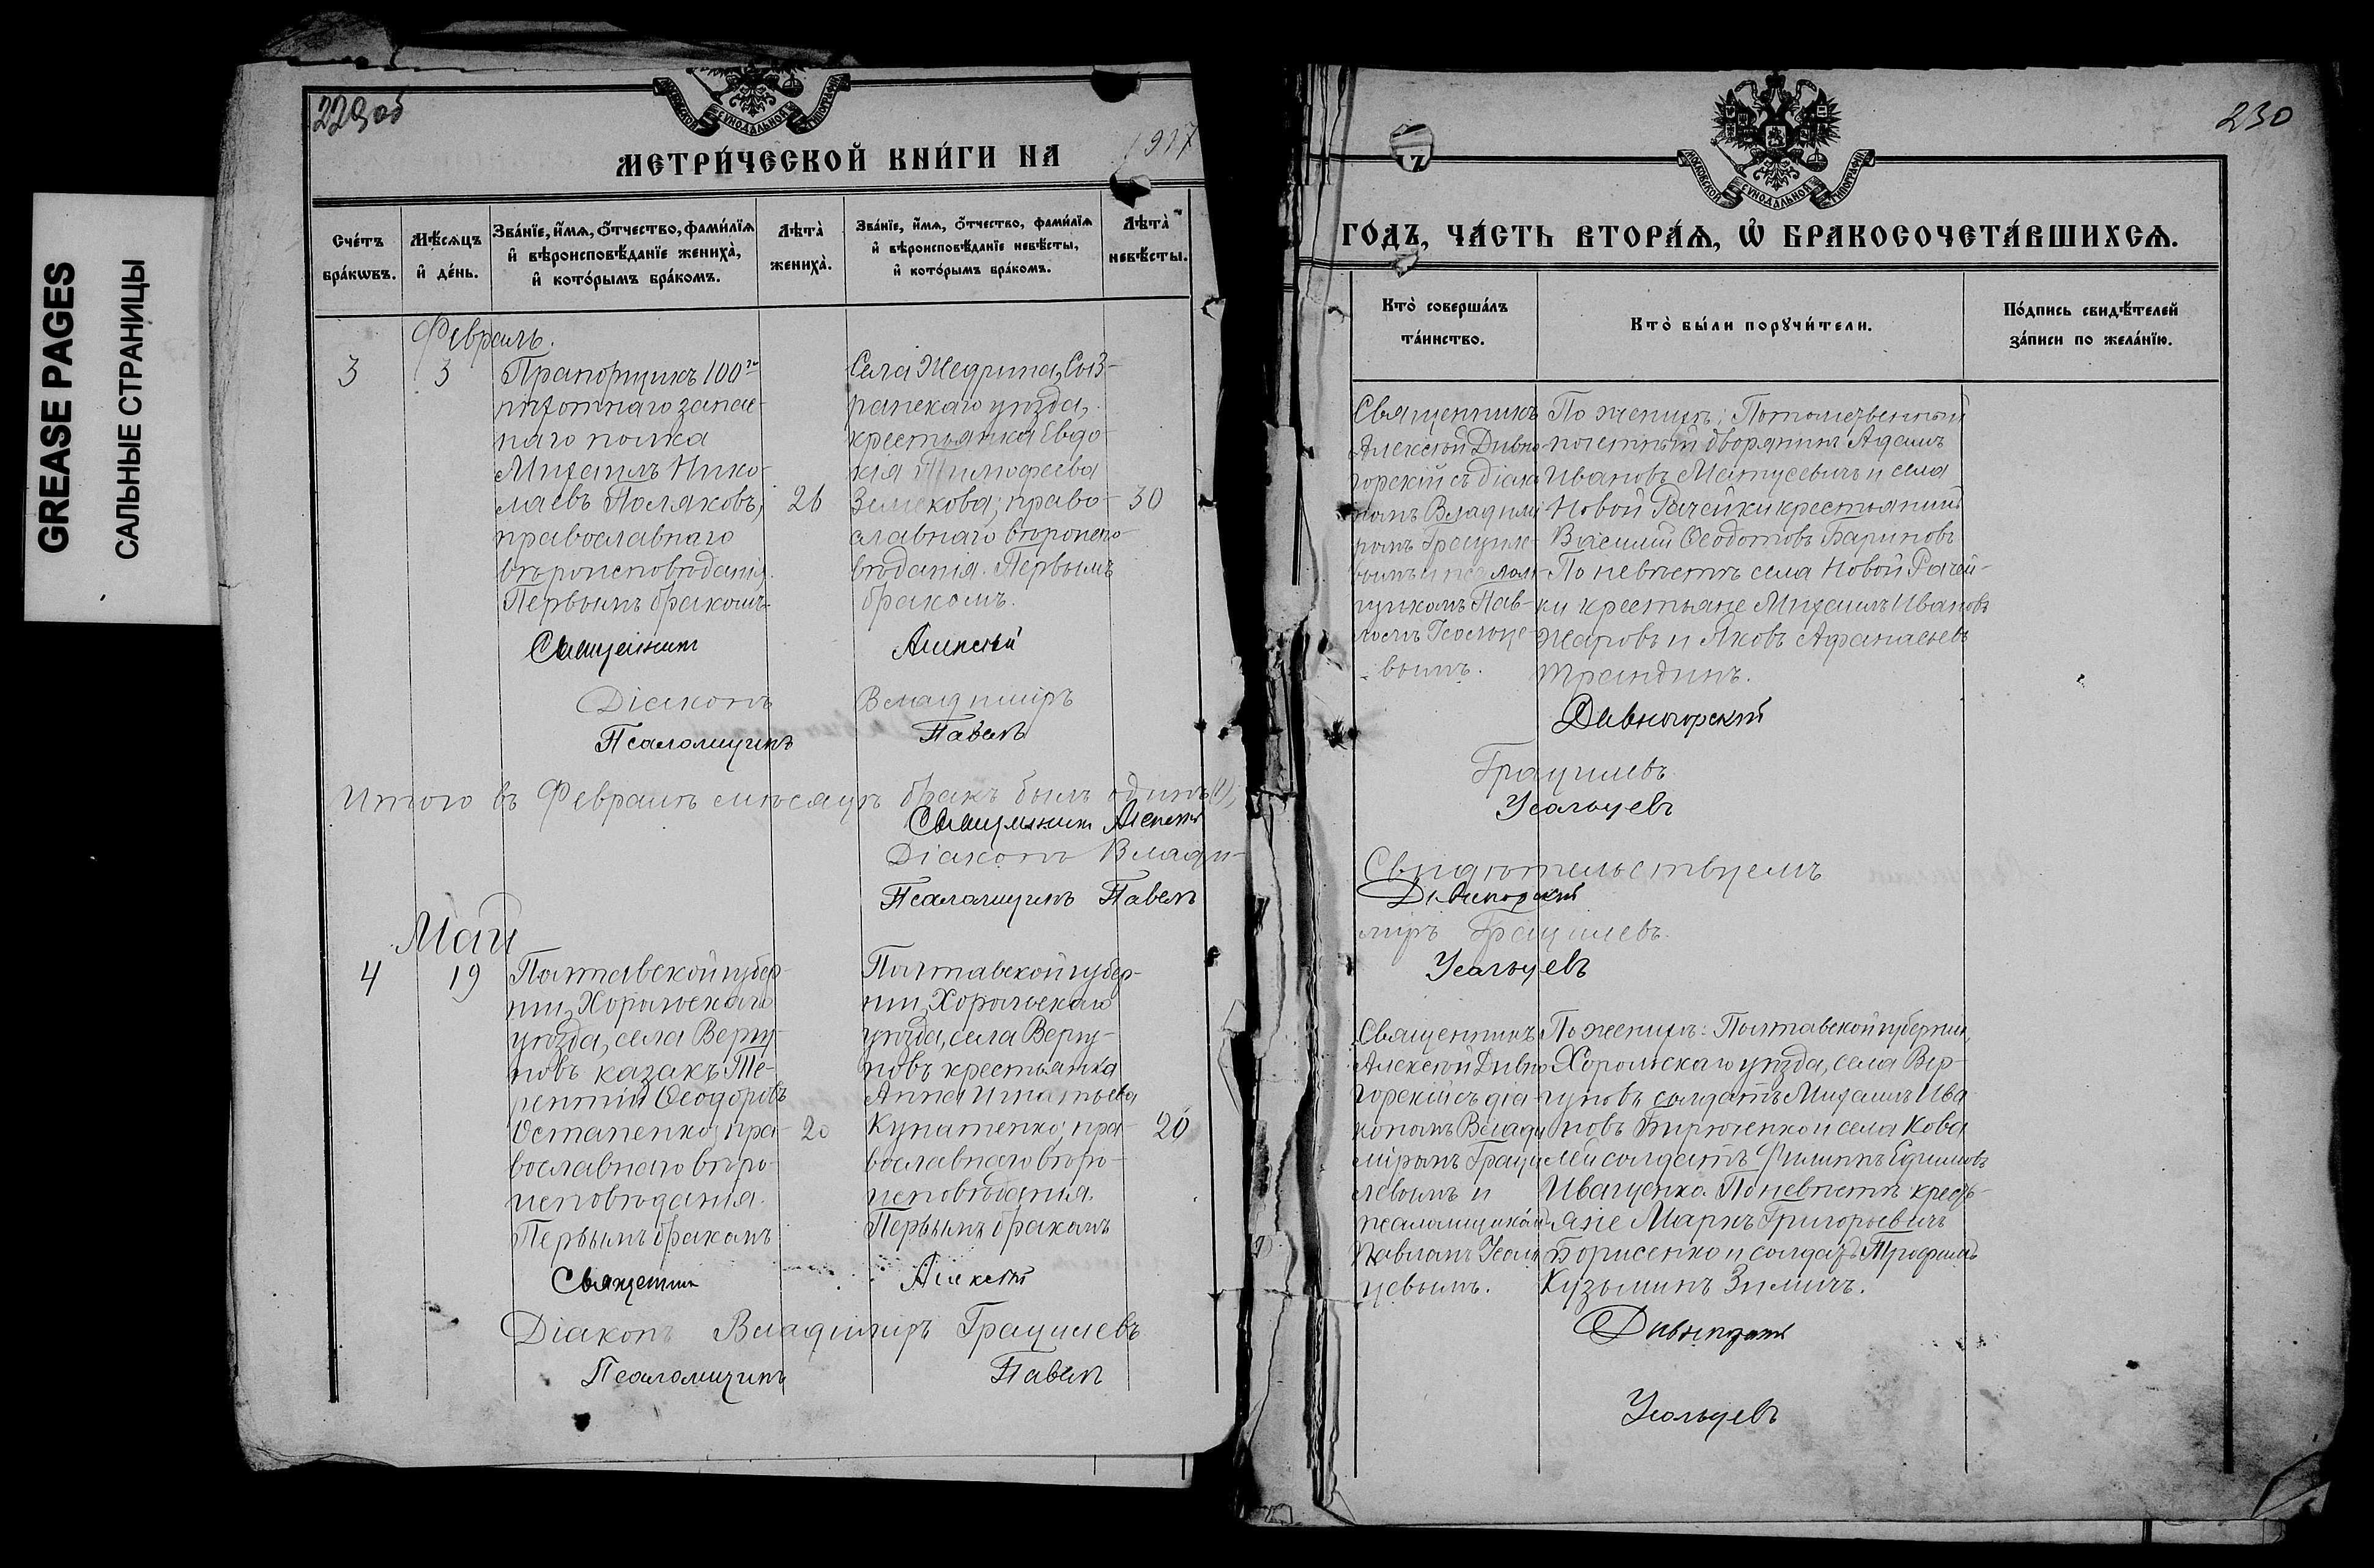 GREASE PAGES
САЛЬНЫЕ СТРАНИЦЫ
229 об
МОСКОВСКОЙ СѴНОДАЛЬНОЙ ТИПОГРАФІИ
МЕТРИ́ЧЕСКОЙ КНИ́ГИ НА 1917
Сче́тъ бра́кѡвъ.
Мѣ́сѧцъ и҆ де́нь.
Зва́нїе, и҆́мѧ, ѻ҆́тчество, фами́лїѧ и҆ вѣроисповѣ́данїе жениха̀, и҆ кото́рымъ бра́комъ.
Лѣта̀ жениха̀.
Зва́нїе, и҆́мѧ, ѻ҆́тчество, фами́лїѧ и҆ вѣроисповѣ́данїе невѣ́сты, и҆ кото́рымъ бра́комъ.
Лѣта̀ невѣ́сты.
Февраль.
3
3
Прапорщикъ 100го
пѣхотнаго запас-
наго полка
Михаилъ Нико-
лаевъ Поляковъ,
православнаго
вѣроисповѣданія.
Первымъ бракомъ.
26
Села Жедрина, Сыз-
ранскаго уѣзда,
крестьянка Евдо-
кія Тимофеева
Земскова, право-
славнаго вѣроиспо-
вѣданія. Первымъ
бракомъ.
30
Священникъ Алексѣй
Діаконъ Владиміръ
Псаломщикъ Павелъ
Итого въ Февралѣ мѣсяцѣ бракъ былъ одинъ (1),
Священникъ Алексѣй
Діаконъ Влади-
Псаломщикъ Павелъ
Май
4
19
Полтавской губер-
ніи, Хорольскаго
уѣзда, села Вергу-
новъ казакъ Те-
рентій Ѳеодоровъ
Остапенко, пра-
вославнаго вѣро-
исповѣданія.
Первымъ бракомъ
20
Полтавской губер-
ніи, Хорольскаго
уѣзда, села Вергу-
новъ крестьянка
Анна Игнатьева
Купатенко, пра-
вославнаго вѣро-
исповѣданія.
Первымъ бракомъ
20
Священникъ Алексѣй
Діаконъ Владиміръ Грацилевъ
Псаломщикъ Павелъ
230
МОСКОВСКОЙ СѴНОДАЛЬНОЙ ТИПОГРАФІИ
ГО́ДЪ, ЧА́СТЬ ВТОРА́Ѧ, Ѡ҆ БРАКОСОЧЕТА́ВШИХСѦ.
Кто̀ соверша́лъ та́инство.
Кто̀ бы́ли порꙋчи́тели.
По́дпись свидѣ́телей за́писи по жела́нїю.
Священникъ
Алексѣй Дивно-
горскій съ діако-
номъ Владимі-
ромъ Грациле-
вымъ и псалом-
щикомъ Пав-
ломъ Усольце-
вымъ.
По женихѣ: Потомственный
почетный дворянинъ Адамъ
Ивановъ Матусевичъ и села
Новой Рачейки крестьянинъ
Василій Ѳеодотовъ Бариновъ
По невѣстѣ села Новой Рачей-
ки крестьяне Михаилъ Ивановъ
Жаровъ и Яковъ Афанасьевъ
Трандинъ.
Дивногорскій
Грацилевъ
Усольцевъ
Свидѣтельствуемъ
Дивногорскій
міръ Грацилевъ.
Усольцевъ
Священникъ
Алексѣй Дивно-
горскій съ діа-
кономъ Влади-
міромъ Граци-
левымъ и
псаломщикомъ
Павломъ Усоль-
цевымъ.
По женихѣ: Полтавской губерніи,
Хорольскаго уѣзда, села Вер-
гуновъ солдатъ Михаилъ Ива-
новъ Бирюченко и села Кова
лей солдатъ Филиппъ Ефимовъ
Иващенко. По невѣстѣ кресть-
яне Маркъ Григорьевичъ
Борисенко и солдатъ Трофимъ
Кузьминъ Зимичъ.
Дивногорскій
Усольцевъ